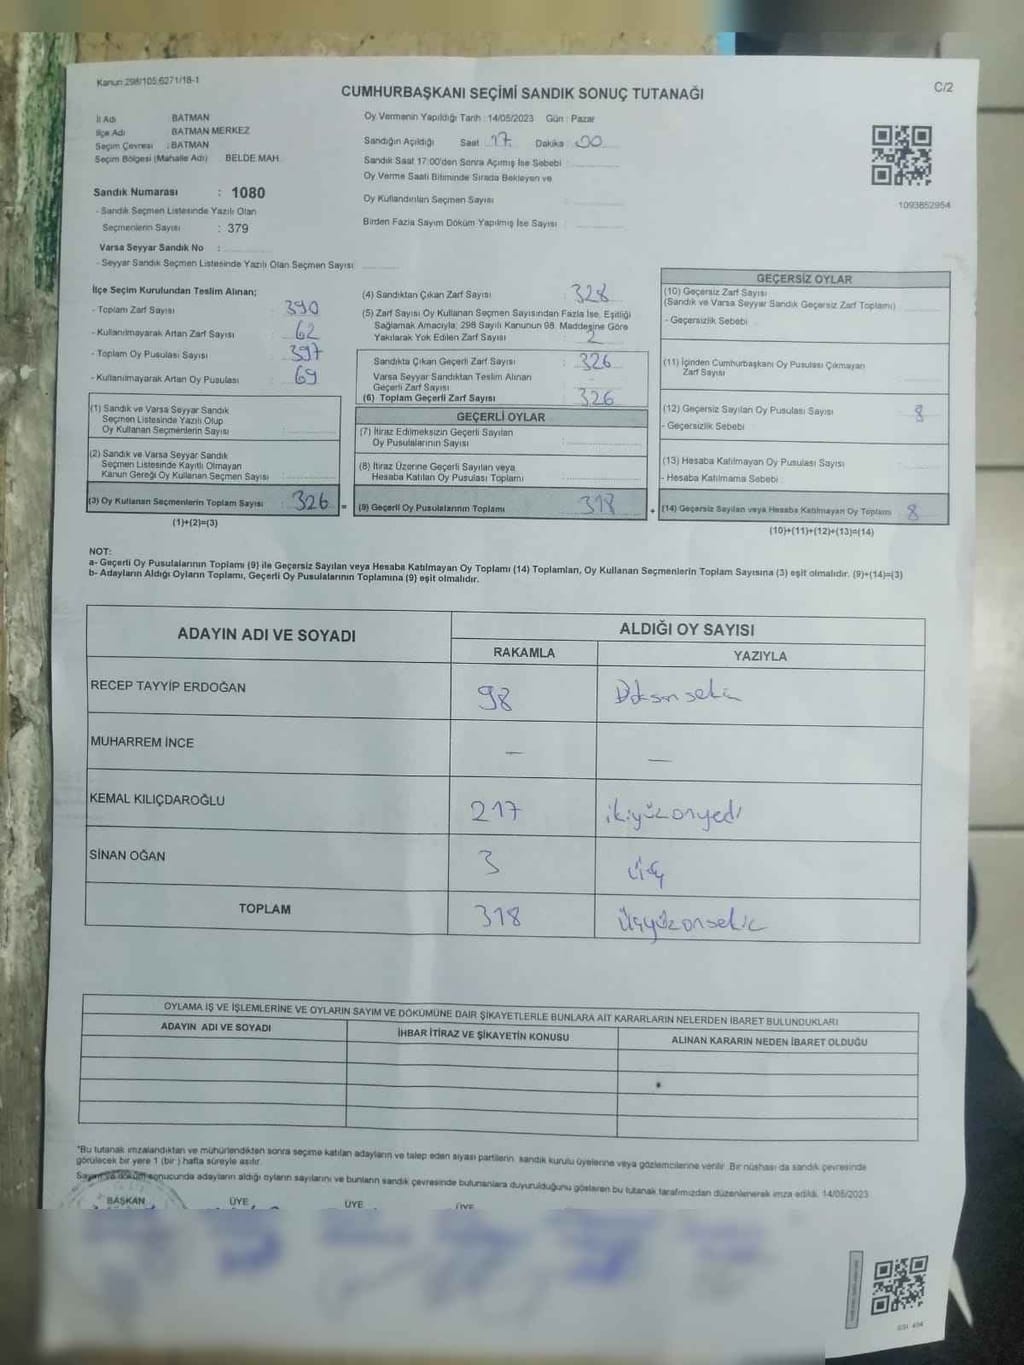 Kanun:298/105;6271/18-1
C/2
CUMHURBAŞKANI SEÇİMİ SANDIK SONUÇ TUTANAĞI
İl Adı BATMAN
İlçe Adı BATMAN MERKEZ
Seçim Çevresi : BATMAN
Seçim Bölgesi (Mahalle Adı) BELDE MAH.
Sandık Numarası : 1080
- Sandık Seçmen Listesinde Yazılı Olan
Seçmenlerin Sayısı : 379
Varsa Seyyar Sandık No :
- Seyyar Sandık Seçmen Listesinde Yazılı Olan Seçmen Sayısı
Oy Vermenin Yapıldığı Tarih : 14/05/2023 Gün : Pazar
Sandığın Açıldığı Saat 17 Dakika 00
Sandık Saat 17:00'den Sonra Açımış İse Sebebi
Oy Verme Saati Bitiminde Sırada Bekleyen ve
Oy Kullandırılan Seçmen Sayısı :
Birden Fazla Sayım Döküm Yapılmış İse Sayısı :
1093852954
İlçe Seçim Kurulundan Teslim Alınan;
- Toplam Zarf Sayısı : 390
- Kullanılmayarak Artan Zarf Sayısı : 62
- Toplam Oy Pusulası Sayısı : 397
- Kullanılmayarak Artan Oy Pusulası : 69
(1) Sandık ve Varsa Seyyar Sandık
Seçmen Listesinde Yazılı Olup
Oy Kullanan Seçmenlerin Sayısı :
(2) Sandık ve Varsa Seyyar Sandık
Seçmen Listesinde Kayıtlı Olmayan
Kanun Gereği Oy Kullanan Seçmen Sayısı :
(3) Oy Kullanan Seçmenlerin Toplam Sayısı 326 =
(1)+(2)=(3)
(4) Sandıktan Çıkan Zarf Sayısı : 328
(5) Zarf Sayısı Oy Kullanan Seçmen Sayısından Fazla İse, Eşitliği
Sağlamak Amacıyla; 298 Sayılı Kanunun 98. Maddesine Göre
Yakılarak Yok Edilen Zarf Sayısı : 2
Sandıkta Çıkan Geçerli Zarf Sayısı : 326
Varsa Seyyar Sandıktan Teslim Alınan
Geçerli Zarf Sayısı
(6) Toplam Geçerli Zarf Sayısı : 326
GEÇERLİ OYLAR
(7) İtiraz Edilmeksizin Geçerli Sayılan
Oy Pusulalarının Sayısı :
(8) İtiraz Üzerine Geçerli Sayılan veya
Hesaba Katılan Oy Pusulası Toplamı :
(9) Geçerli Oy Pusulalarının Toplamı 318 +
GEÇERSİZ OYLAR
(10) Geçersiz Zarf Sayısı
(Sandık ve Varsa Seyyar Sandık Geçersiz Zarf Toplamı)
- Geçersizlik Sebebi
(11) İçinden Cumhurbaşkanı Oy Pusulası Çıkmayan
Zarf Sayısı
(12) Geçersiz Sayılan Oy Pusulası Sayısı 8
- Geçersizlik Sebebi
(13) Hesaba Katılmayan Oy Pusulası Sayısı
- Hesaba Katılmama Sebebi
(14) Geçersiz Sayılan veya Hesaba Katılmayan Oy Toplamı 8
(10)+(11)+(12)+(13)=(14)
NOT:
a- Geçerli Oy Pusulalarının Toplamı (9) ile Geçersiz Sayılan veya Hesaba Katılmayan Oy Toplamı (14) Toplamları, Oy Kullanan Seçmenlerin Toplam Sayısına (3) eşit olmalıdır. (9)+(14)=(3)
b- Adayların Aldığı Oyların Toplamı, Geçerli Oy Pusulalarının Toplamına (9) eşit olmalıdır.
ADAYIN ADI VE SOYADI ALDIĞI OY SAYISI
RAKAMLA YAZIYLA
RECEP TAYYİP ERDOĞAN 98 Doksansekiz
MUHARREM İNCE — —
KEMAL KILIÇDAROĞLU 217 ikiyüzonyedi
SİNAN OĞAN 3 üç
TOPLAM 318 üçyüzonsekiz
OYLAMA İŞ VE İŞLEMLERİNE VE OYLARIN SAYIM VE DÖKÜMÜNE DAİR ŞİKAYETLERLE BUNLARA AİT KARARLARIN NELERDEN İBARET BULUNDUKLARI
ADAYIN ADI VE SOYADI İHBAR İTİRAZ VE ŞİKAYETİN KONUSU ALINAN KARARIN NEDEN İBARET OLDUĞU
*Bu tutanak imzalandıktan ve mühürlendikten sonra seçime katılan adayların ve talep eden siyasi partilerin, sandık kurulu üyelerine veya gözlemcilerine verilir. Bir nüshası da sandık çevresinde
görülecek bir yere 1 (bir) hafta süreyle asılır.
Sayım ve döküm sonucunda adayların aldığı oyların sayılarını ve bunların sandık çevresinde bulunanlara duyurulduğunu gösteren bu tutanak tarafımızdan düzenlenerek imza edildi. 14/05/2023
BAŞKAN ÜYE ÜYE ÜYE